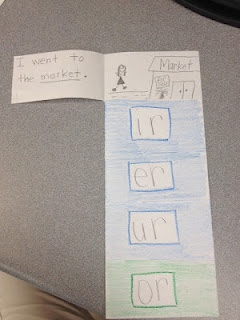 I went to
the market.
Market
ir
er
ur
or